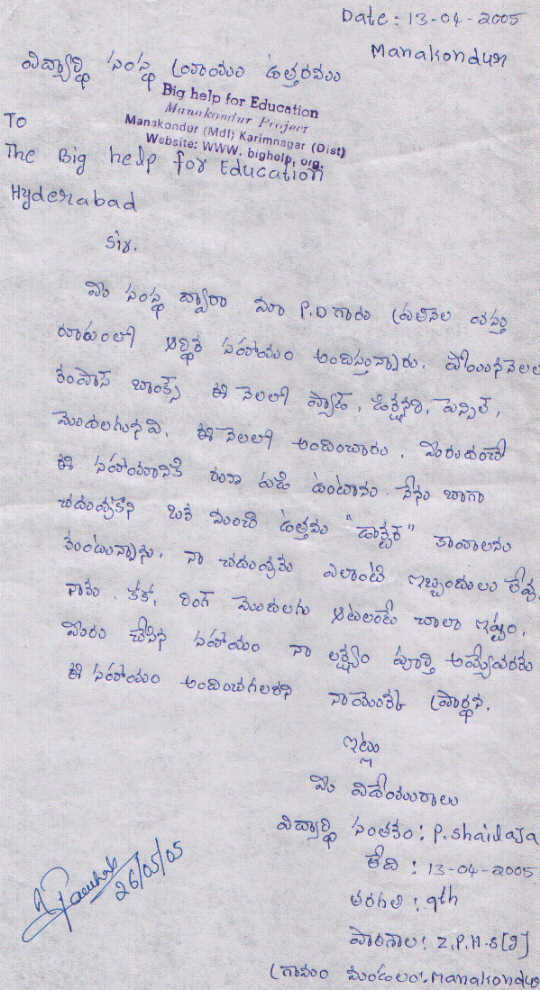 Date: 13-04-2005
Manakondur
విద్యార్థి సంస్థ వ్రాయు ఉత్తరము
Big help for Education
Manakondur Project
Manakondur (Mdl) Karimnagar (Dist)
Website: WWW. bighelp, org.
To
The Big help for Education
Hyderabad
Sir.
మీ సంస్థ ద్వారా మా P.D గారు ప్రతినెల
ఆర్థిక సహాయం అందిస్తున్నారు. పోయిననెలల
కంపాస్ బాక్స్ ఈ నెలలో ప్యాడ్, డిక్షనరి, పెన్సిల్,
మొదలగునవి. ఈ నెలలో అందించారు. మీరందించే
ఈ సహాయానికి రుణ పడి ఉంటాను. నేను బాగా
చదువుకొని ఒక మంచి ఉత్తమ "డాక్టర్" కావాలను
కుంటున్నాను. నా చదువుకు ఎలాంటి ఇబ్బందులు లేవు.
నాకు. కోకో, రింగ్ మొదలగు ఆటలంటే చాలా ఇష్టం.
మీరు చేసిన సహాయం నా లక్ష్యం పూర్తి అయ్యేవరకు
ఈ సహాయం అందించగలరని నాయొక్క ప్రార్థన.
ఇట్లు
మీ విధేయురాలు
విద్యార్థి సంతకం: P.shailaja
తేది : 13-04-2005
తరగతి : 9th
పాఠశాల: Z.P.H.S[ ]
గ్రామం మండలం: Manakondur
26/05/05